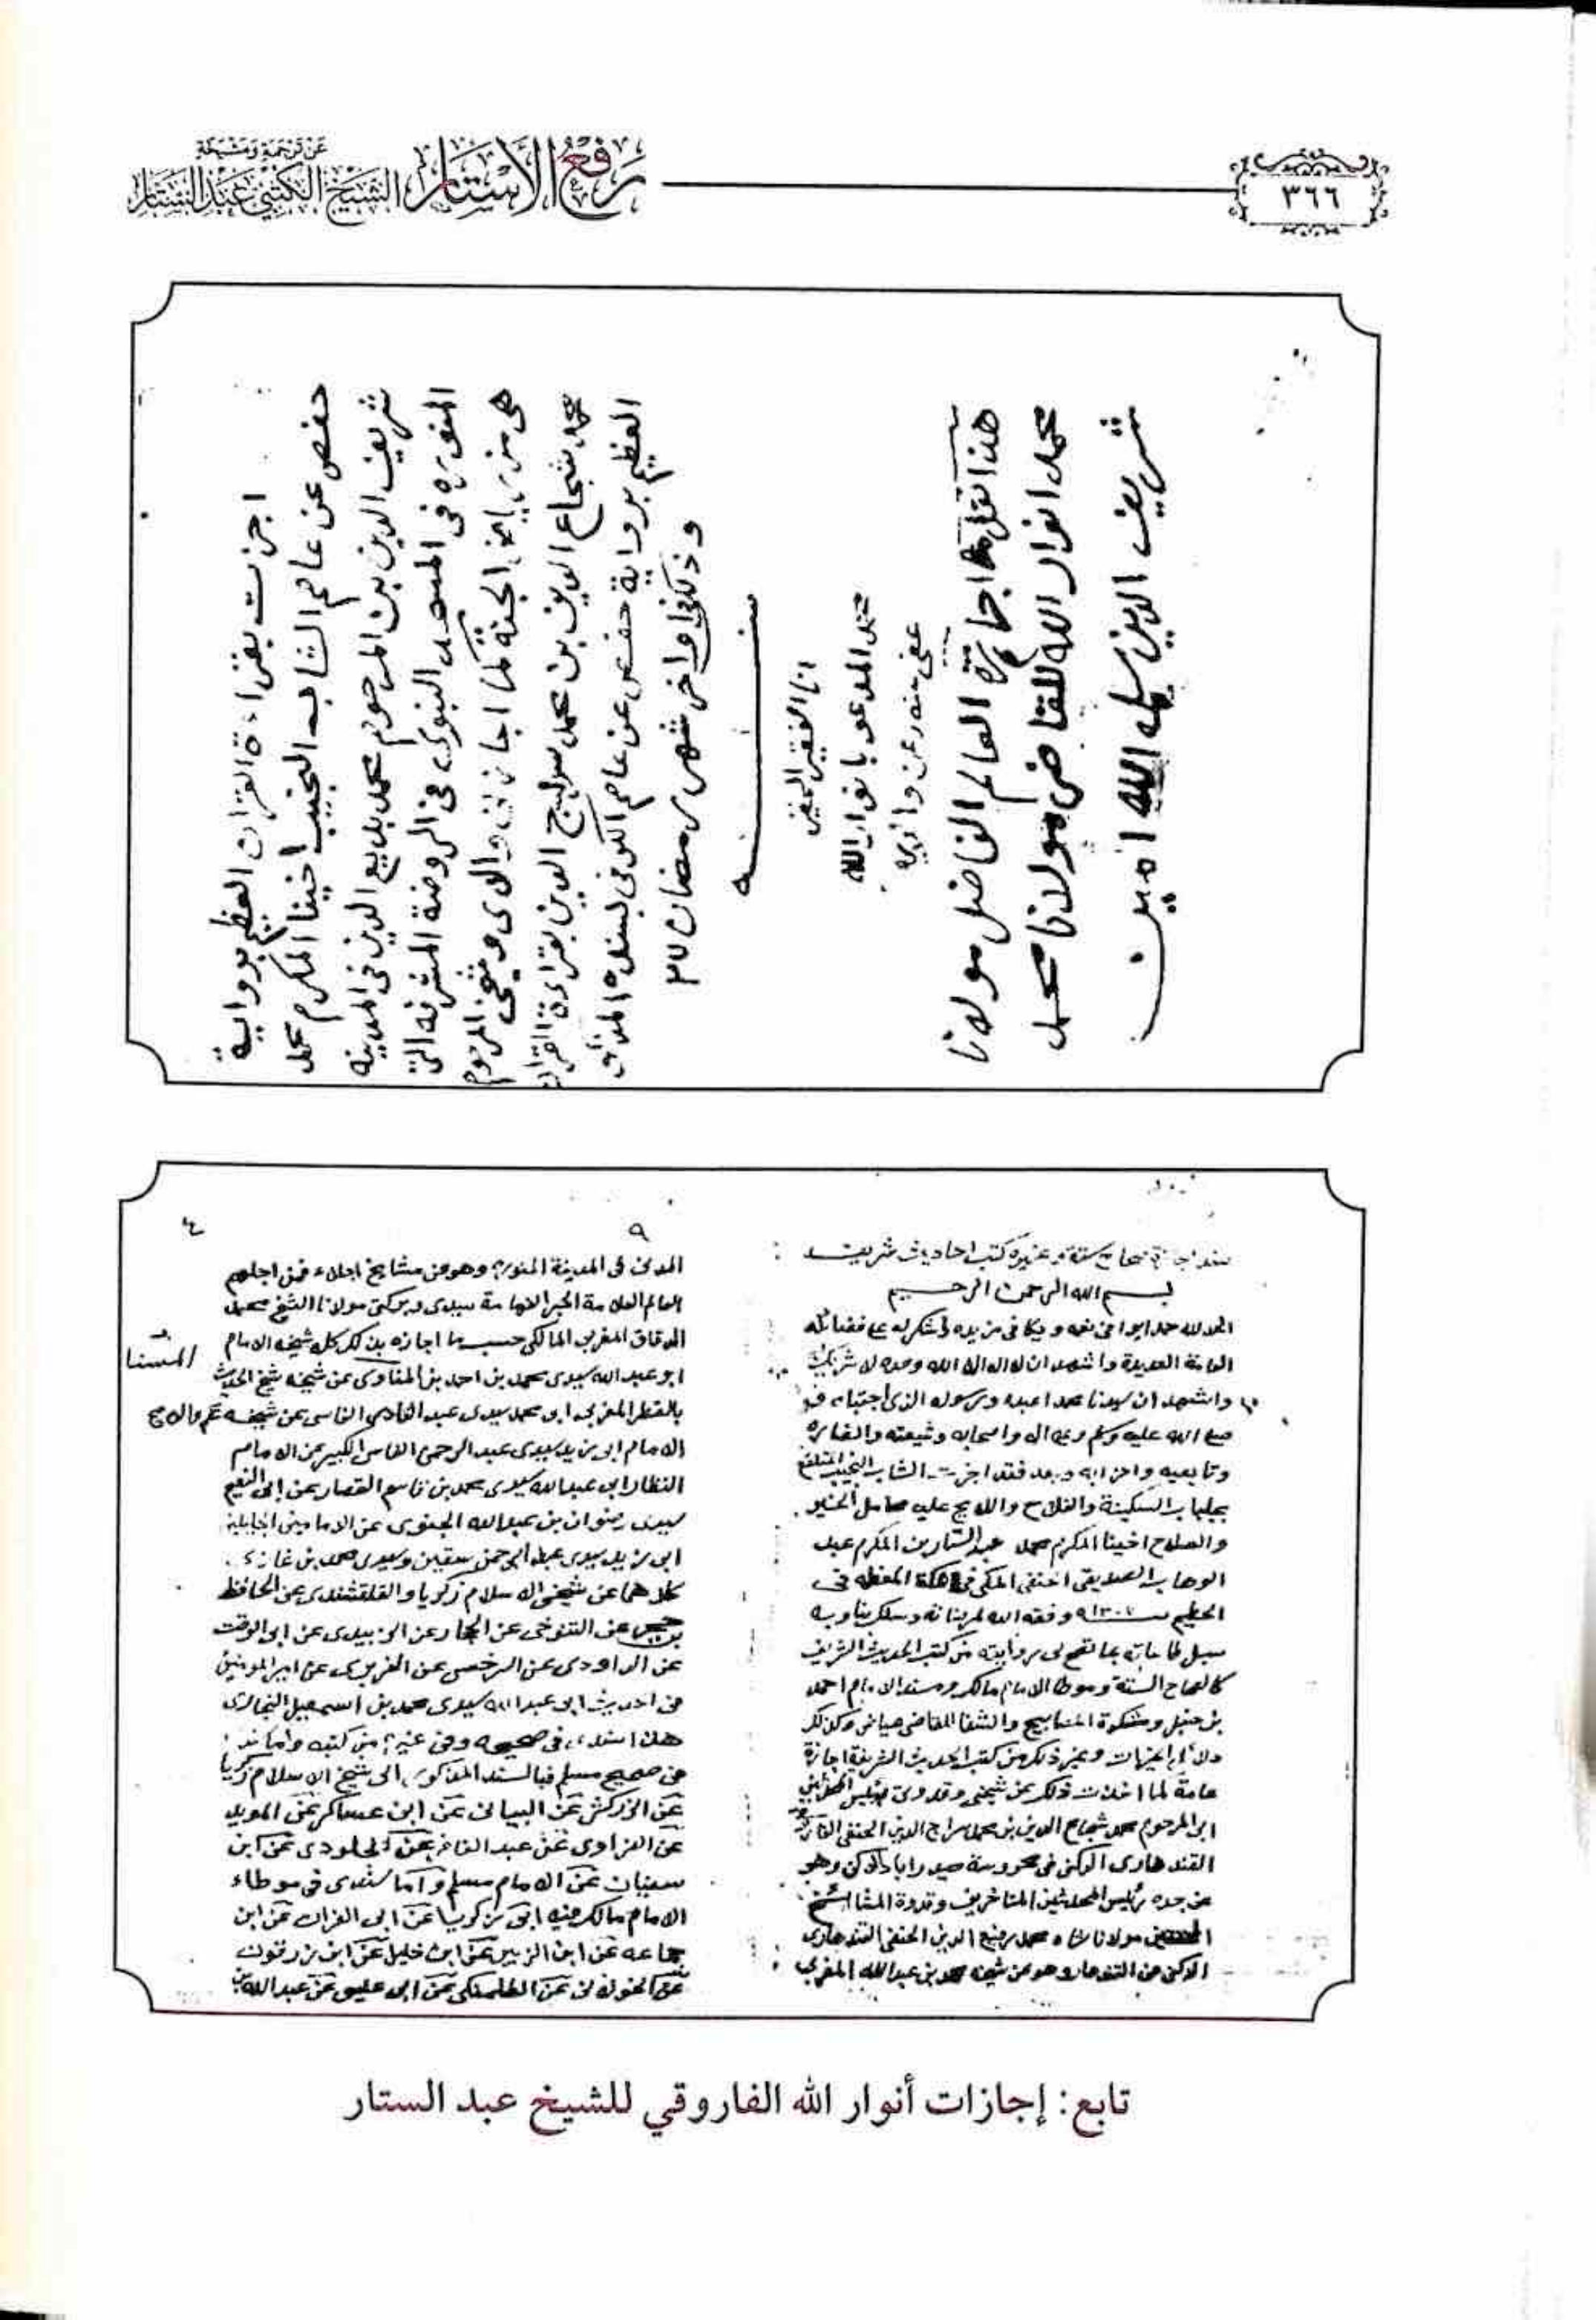 ٣٦٦
رفع الأستار
عن ترجمة ومشيخة
الشيخ الكتبي عبد الستار
اجزت بقراءة القرآن العظيم برواية
حفص عن عاصم الشاب النجيب اخينا المكرم محمد
شريف الدين بن المرحوم محمد بديع الدين في المدينه
المنوره في المسجد النبوي في الروضة المشرفه التي
هي من رياض الجنة كما اجازني والدي وشيخي المرحوم
محمد شجاع الدين بن محمد سراج الدين بقراءة القرآن
العظيم برواية حفص عن عاصم الكوفي بسنده
وذلك في اواخر شهر رمضان
سنه
انا الفقير الحقير
محمد المدعو بانوار الله
عفي عنه وعن والديه
هذا نقل اجازة العالم الفاضل مولانا
محمد انوار الله للقاضي مولانا محمد
شريف الدين سلمه الله امين
صحاح ستة وغيره كتب احاديث شريف
بسم الله الرحمن الرحيم
الحمد لله حمدا يوافي نعمه ويكافي مزيده واشكره على فضائله
العامة العديدة واشهد ان لا اله الا الله وحده لا شريك له
واشهد ان سيدنا محمدا عبده ورسوله الذي اجتباه
صلى الله عليه وسلم وعلى اله واصحابه وشيعته وانصاره
وتابعيه واحزابه وبعد فقد اجزت الشاب النجيب
بجلباب السكينة والفلاح واللايح عليه الخير
والصلاح اخينا المكرم محمد عبد الستار بن المكرم عبد
الوهاب الصديقي الحنفي المكي في مكة المعظمه في
الحطيم وفقه الله لمرضاته وسلك بنا وبه
سبيل طاعاته بما تصح لي روايته من كتب الحديث الشريف
كالصحاح الستة وموطا الامام مالك ومسند الامام احمد
بن حنبل ومشكوة المصابيح والشفا للقاضي عياض وكذلك
دلائل الخيرات وغير ذلك من كتب الحديث الشريفة اجازة
عامة لما اخذت ذلك عن شيخي وقدوتي
ابي المرحوم محمد شجاع الدين بن محمد سراج الدين الحنفي
القندهاري الدكني في محروسة حيدراباد الدكن وهو
عن جده رئيس المحدثين المتاخرين وقدوة المشائخ
مولانا شاه محمد رفيع الدين الحنفي القندهاري
الدكني من القندهار وهو عن شيخه محمد بن عبد الله المغربي
٩
٤
المدني في المدينة المنوره وهو عن مشايخ اجلاء فمن اجلهم
العالم العلامة الحبر الفهامة سيدي وبركتي مولانا الشيخ محمد
الدقاق المغربي المالكي حسب ما اجازه بذلك كله شيخه الامام
ابو عبد الله سيدي محمد بن احمد بن المسناوي عن شيخه شيخ الحديث
المسنا
بالقطر المغربي ابي محمد سيدي عبد القادر الفاسي عن شيخه
الامام ابي زيد سيدي عبد الرحمن الفاسي الكبير عن الامام
النظار ابي عبد الله سيدي محمد بن قاسم القصار عن ابي النعيم
سيدي رضوان بن عبد الله الجنوي عن الامامين
ابي زيد سيدي عبد الرحمن سقين وسيدي محمد بن غازي
كلاهما عن شيخي الاسلام زكريا والقلقشندي عن الحافظ
بن حجر عن التنوخي عن الحجار عن الزبيدي عن ابي الوقت
عن الداودي عن السرخسي عن الفربري عن امير المومنين
في الحديث ابي عبد الله سيدي محمد بن اسمعيل البخاري
هذا سندي في صحيحه وفي غيره من كتبه واما
في صحيح مسلم فبالسند المذكور الى شيخ الاسلام زكريا
عن الزركشي عن البياني عن ابن عساكر عن المويد
عن الفراوي عن عبد الغافر عن الجلودي عن ابن
سفيان عن الامام مسلم واما سندي في موطاء
الامام مالك زكريا عن ابن الفرات عن ابن
جماعه عن ابن الزبير عن ابن خليل عن ابن زرقون
عن الخولاني عن الطلمنكي عن ابي عيسى عن عبد الله
تابع: إجازات أنوار الله الفاروقي للشيخ عبد الستار